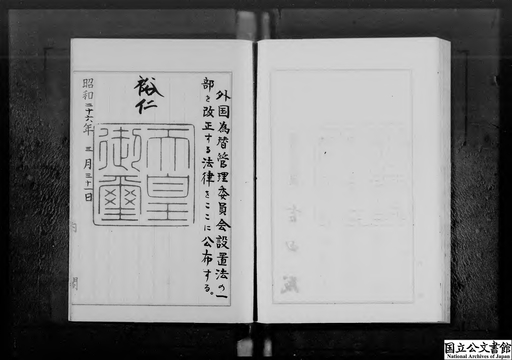 外国為替管理委員会設置法の一
部を改正する法律をここに公布する。
裕仁
天皇
御璽
昭和二十六年三月三十一日
国立公文書館
National Archives of Japan